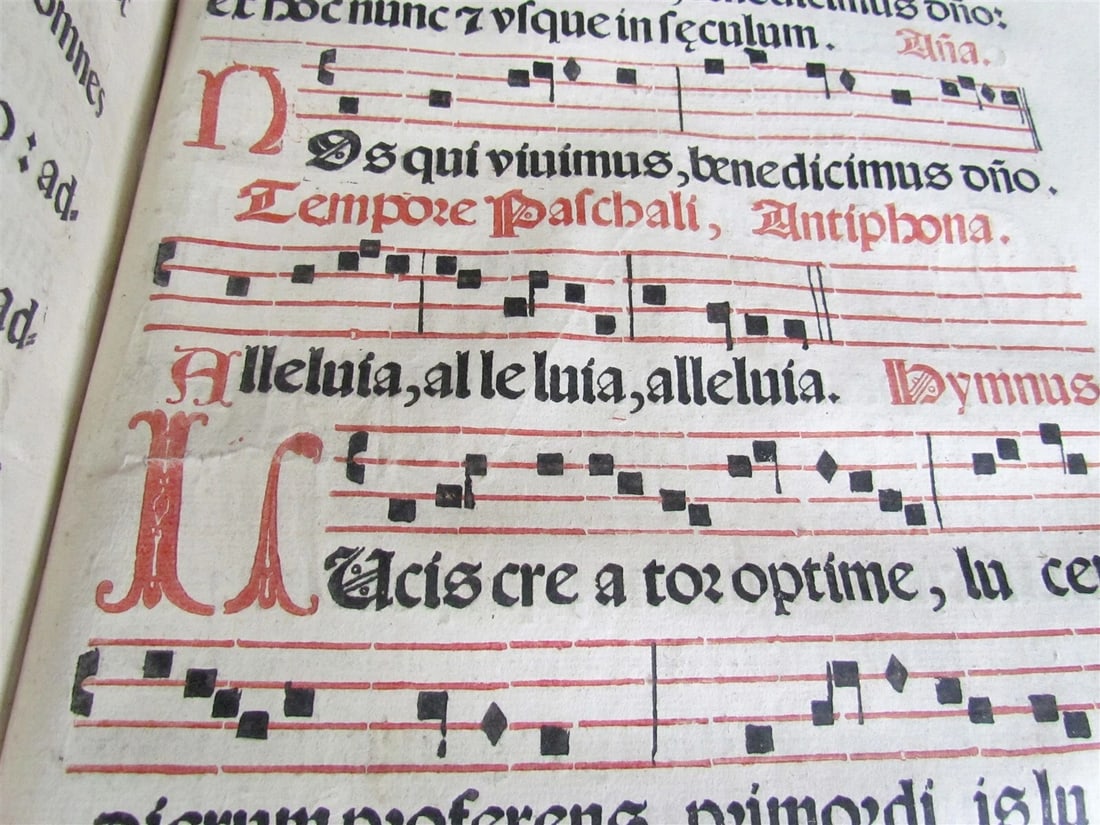 omnes
o : ad.
ad.
et hoc nunc ⁊ vſque in ſęculum. Aña.
NOs qui viuimus, benedicimus dño.
Tempore Paſchali, Antiphona.
Alleluia, al le luia, alleluia. Hymnus
LUcis cre a toꝛ optime, lu ce
dierum proferens, primoꝛdi is lu